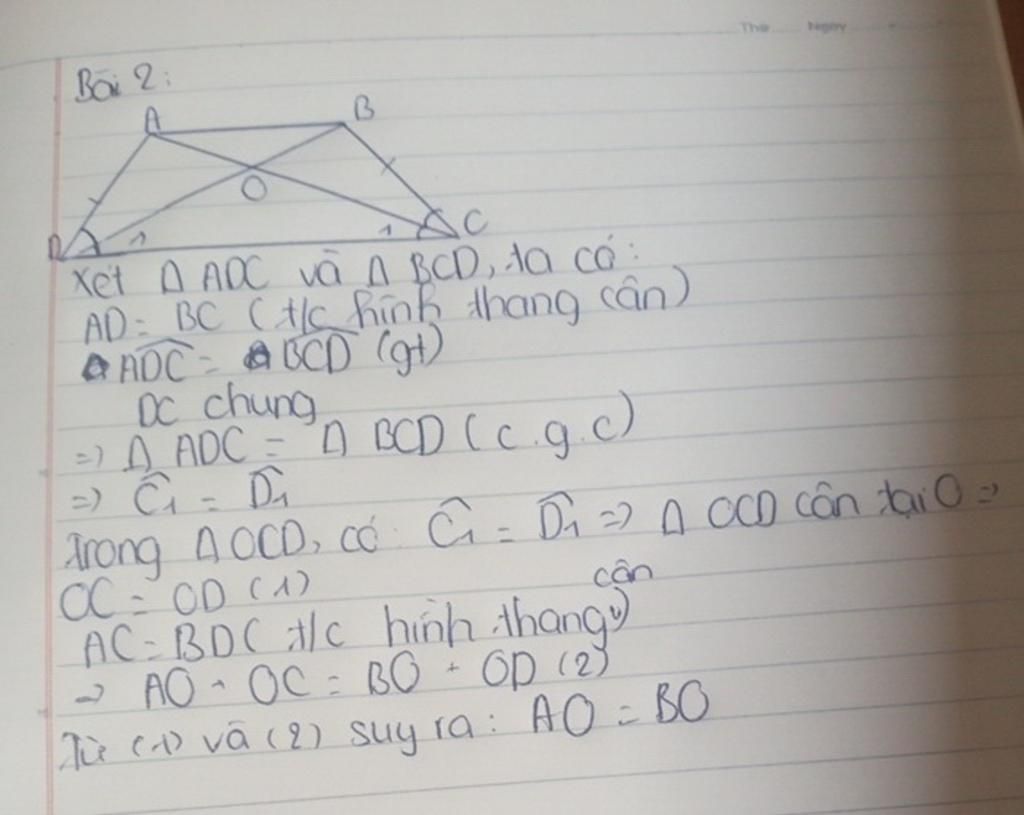 Thứ Ngày
Bài 2:
A B
O
D 1 1 C
Xét Δ ADC và Δ BCD, ta có:
AD = BC (t/c hình thang cân)
ADC = BCD (gt)
DC chung
=> Δ ADC = Δ BCD (c.g.c)
=> Ĉ₁ = D̂₁
Trong Δ OCD, có: Ĉ₁ = D̂₁ => Δ OCD cân tại O =>
OC = OD (1)
cân
AC = BD (t/c hình thang)
=> AO + OC = BO + OD (2)
Từ (1) và (2) suy ra: AO = BO